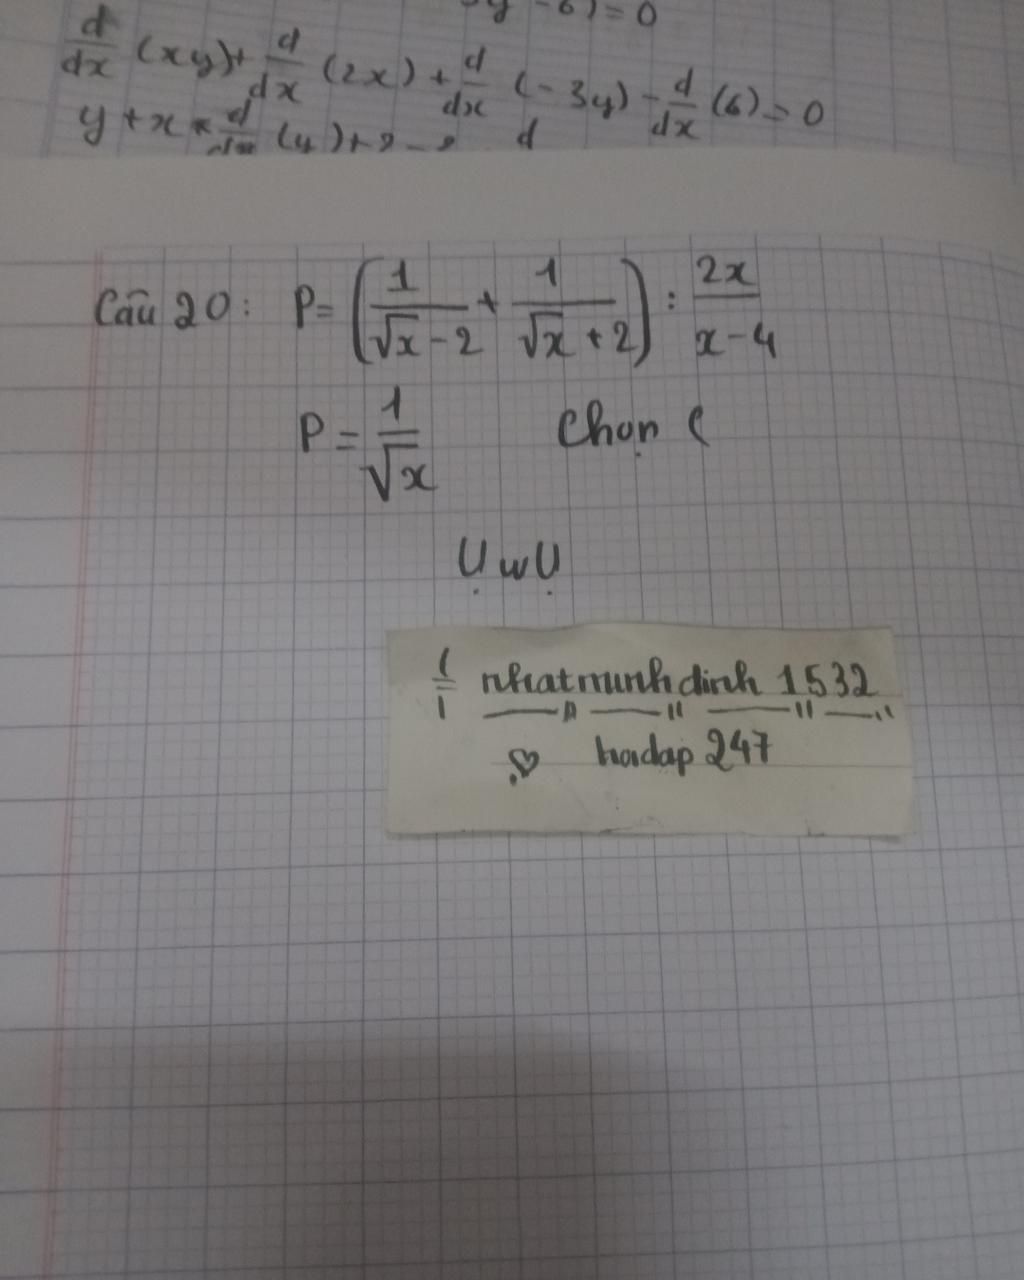 y - 6) = 0
d/dx (xy) + d/dx (2x) + d/dx (-3y) - d/dx (6) = 0
y + x * d/dx (y) + 2 - d
Câu 20: P = (1/(√x - 2) + 1/(√x + 2)) : 2x/(x - 4)
P = 1/√x Chọn C
ỤwỤ
nhatminhdinh 1532
hoidap 247